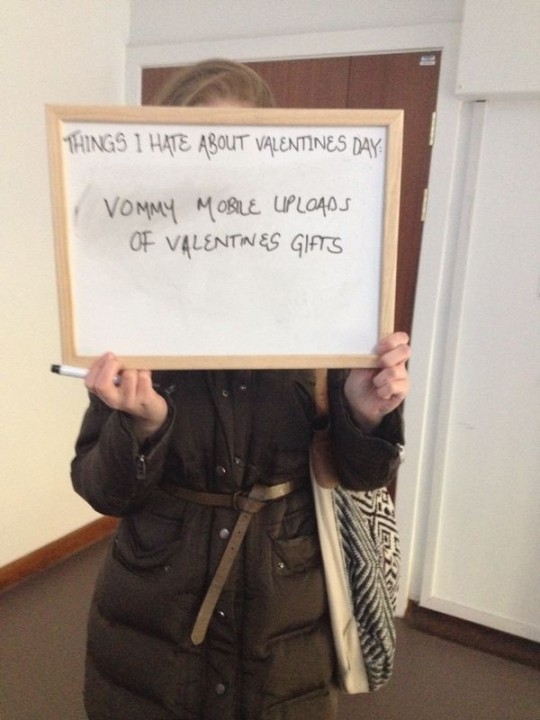 THINGS I HATE ABOUT VALENTINES DAY:
VOMMY MOBILE UPLOADS
OF VALENTINES GIFTS